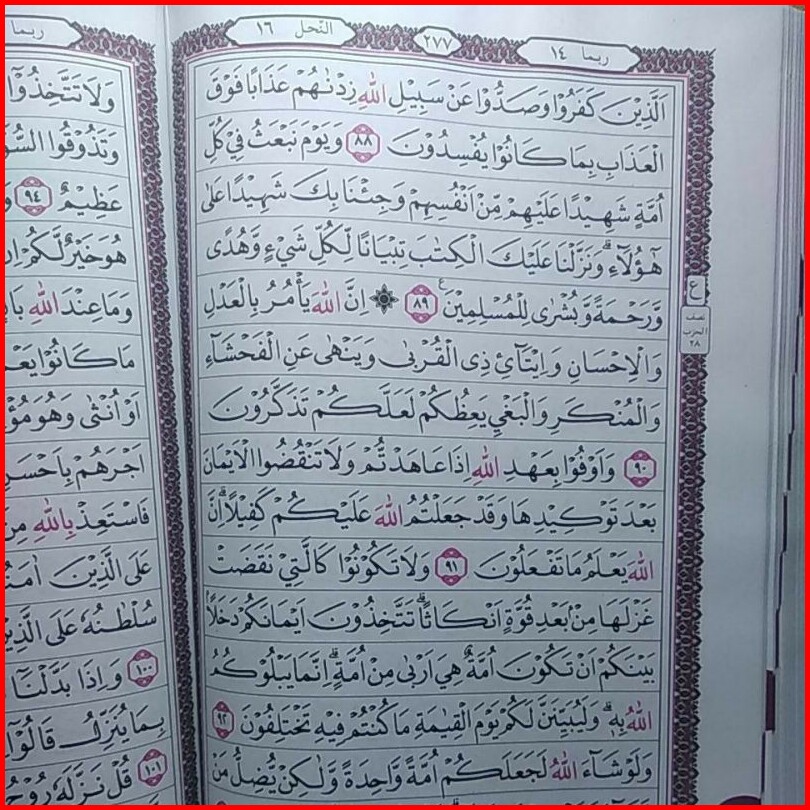 ربما ١٤
٢٧٧
النّحل ١٦
اَلَّذِيْنَ كَفَرُوْا وَصَدُّوْا عَنْ سَبِيْلِ اللّٰهِ زِدْنٰهُمْ عَذَابًا فَوْقَ
الْعَذَابِ بِمَا كَانُوْا يُفْسِدُوْنَ ٨٨ وَيَوْمَ نَبْعَثُ فِيْ كُلِّ
اُمَّةٍ شَهِيْدًا عَلَيْهِمْ مِّنْ اَنْفُسِهِمْ وَجِئْنَا بِكَ شَهِيْدًا عَلٰى
هٰٓؤُلَاۤءِۗ وَنَزَّلْنَا عَلَيْكَ الْكِتٰبَ تِبْيَانًا لِّكُلِّ شَيْءٍ وَّهُدًى
وَّرَحْمَةً وَّبُشْرٰى لِلْمُسْلِمِيْنَ ࣖ ٨٩ ۞ اِنَّ اللّٰهَ يَأْمُرُ بِالْعَدْلِ
وَالْاِحْسَانِ وَاِيْتَاۤئِ ذِى الْقُرْبٰى وَيَنْهٰى عَنِ الْفَحْشَاۤءِ
وَالْمُنْكَرِ وَالْبَغْيِ يَعِظُكُمْ لَعَلَّكُمْ تَذَكَّرُوْنَ
٩٠ وَاَوْفُوْا بِعَهْدِ اللّٰهِ اِذَا عَاهَدْتُّمْ وَلَا تَنْقُضُوا الْاَيْمَانَ
بَعْدَ تَوْكِيْدِهَا وَقَدْ جَعَلْتُمُ اللّٰهَ عَلَيْكُمْ كَفِيْلًاۗ اِنَّ
اللّٰهَ يَعْلَمُ مَا تَفْعَلُوْنَ ٩١ وَلَا تَكُوْنُوْا كَالَّتِيْ نَقَضَتْ
غَزْلَهَا مِنْۢ بَعْدِ قُوَّةٍ اَنْكَاثًاۗ تَتَّخِذُوْنَ اَيْمَانَكُمْ دَخَلًاۢ
بَيْنَكُمْ اَنْ تَكُوْنَ اُمَّةٌ هِيَ اَرْبٰى مِنْ اُمَّةٍۗ اِنَّمَا يَبْلُوْكُمُ
اللّٰهُ بِهٖۗ وَلَيُبَيِّنَنَّ لَكُمْ يَوْمَ الْقِيٰمَةِ مَا كُنْتُمْ فِيْهِ تَخْتَلِفُوْنَ ٩٢
وَلَوْ شَاۤءَ اللّٰهُ لَجَعَلَكُمْ اُمَّةً وَّاحِدَةً وَّلٰكِنْ يُّضِلُّ مَنْ
ع
نصف
الحزب
٢٨
ربما
وَلَا تَتَّخِذُوْٓا
وَتَذُوْقُوا
عَظِيْمٌ ٩٤
هُوَ خَيْرٌ لَّكُمْ
وَمَا عِنْدَ اللّٰهِ
مَا كَانُوْا
اَوْ اُنْثٰى وَهُوَ
اَجْرَهُمْ
فَاسْتَعِذْ بِاللّٰهِ
عَلَى الَّذِيْنَ
سُلْطٰنُهٗ عَلَى
١٠٠ وَاِذَا بَدَّلْنَآ
بِمَا يُنَزِّلُ قَالُوْٓا
١٠١ قُلْ نَزَّلَهٗ رُوْحُ